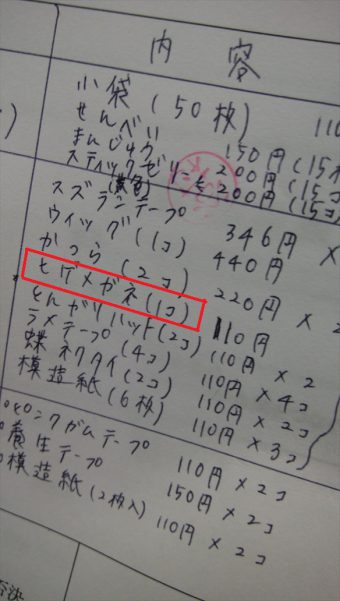 内容
小袋(50枚) 110
せんべい 150円(15枚
まんじゅう 200円(15コ
スティックゼリー 200円(15コ
(黄色)
スズランテープ 346円 ×
ウィッグ(1コ) 440円
かつら(2コ) 220円 × 2
ヒゲメガネ(1コ) 110円
とんがりハット(2コ) 110円 × 2
ラメテープ(4コ) 110円 × 4コ
蝶ネクタイ(2コ) 110円 × 2コ
模造紙(6枚) 110円 × 3コ
ピンクガムテープ 110円 × 2コ
養生テープ 150円 × 2コ
模造紙(2枚入) 110円 × 2コ